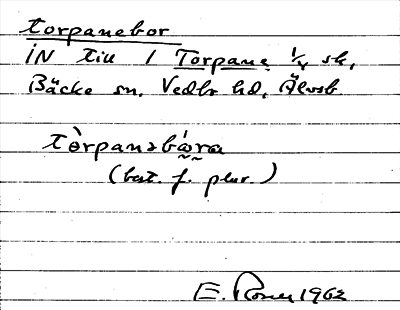 torpanebor
IN till 1 Torpane 1/4 sk,
Bäcke sn. Vedbo hd, Älvsb
tòrpanəbó̰ra̰
(best. f. plur.)
E. 1962